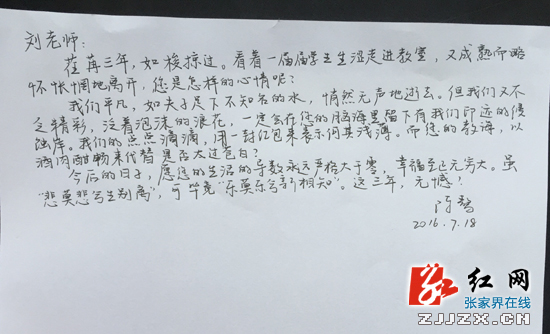 刘老师:
荏苒三年,如梭掠过。看着一届届学生生涩走进教室,又成熟而略
怀怅惘地离开,您是怎样的心情呢?
我们平凡,如夫子足下不知名的水,悄然无声地逝去。但我们又不
乏精彩,泛着泡沫的浪花,一定会在您的脑海里留下有我们印迹的侵
蚀岸。我们的点点滴滴,用一封红包来表示何其浅薄。而您的教诲,以
酒肉酣畅来代替是否太过苍白?
今后的日子,愿您的生活的导数永远严格大于零,幸福至正无穷大。虽
“悲莫悲兮生别离”,可毕竟“乐莫乐兮新相知”。这三年,无憾!
陈
2016.7.18
红网
张家界在线
ZJJZX.CN